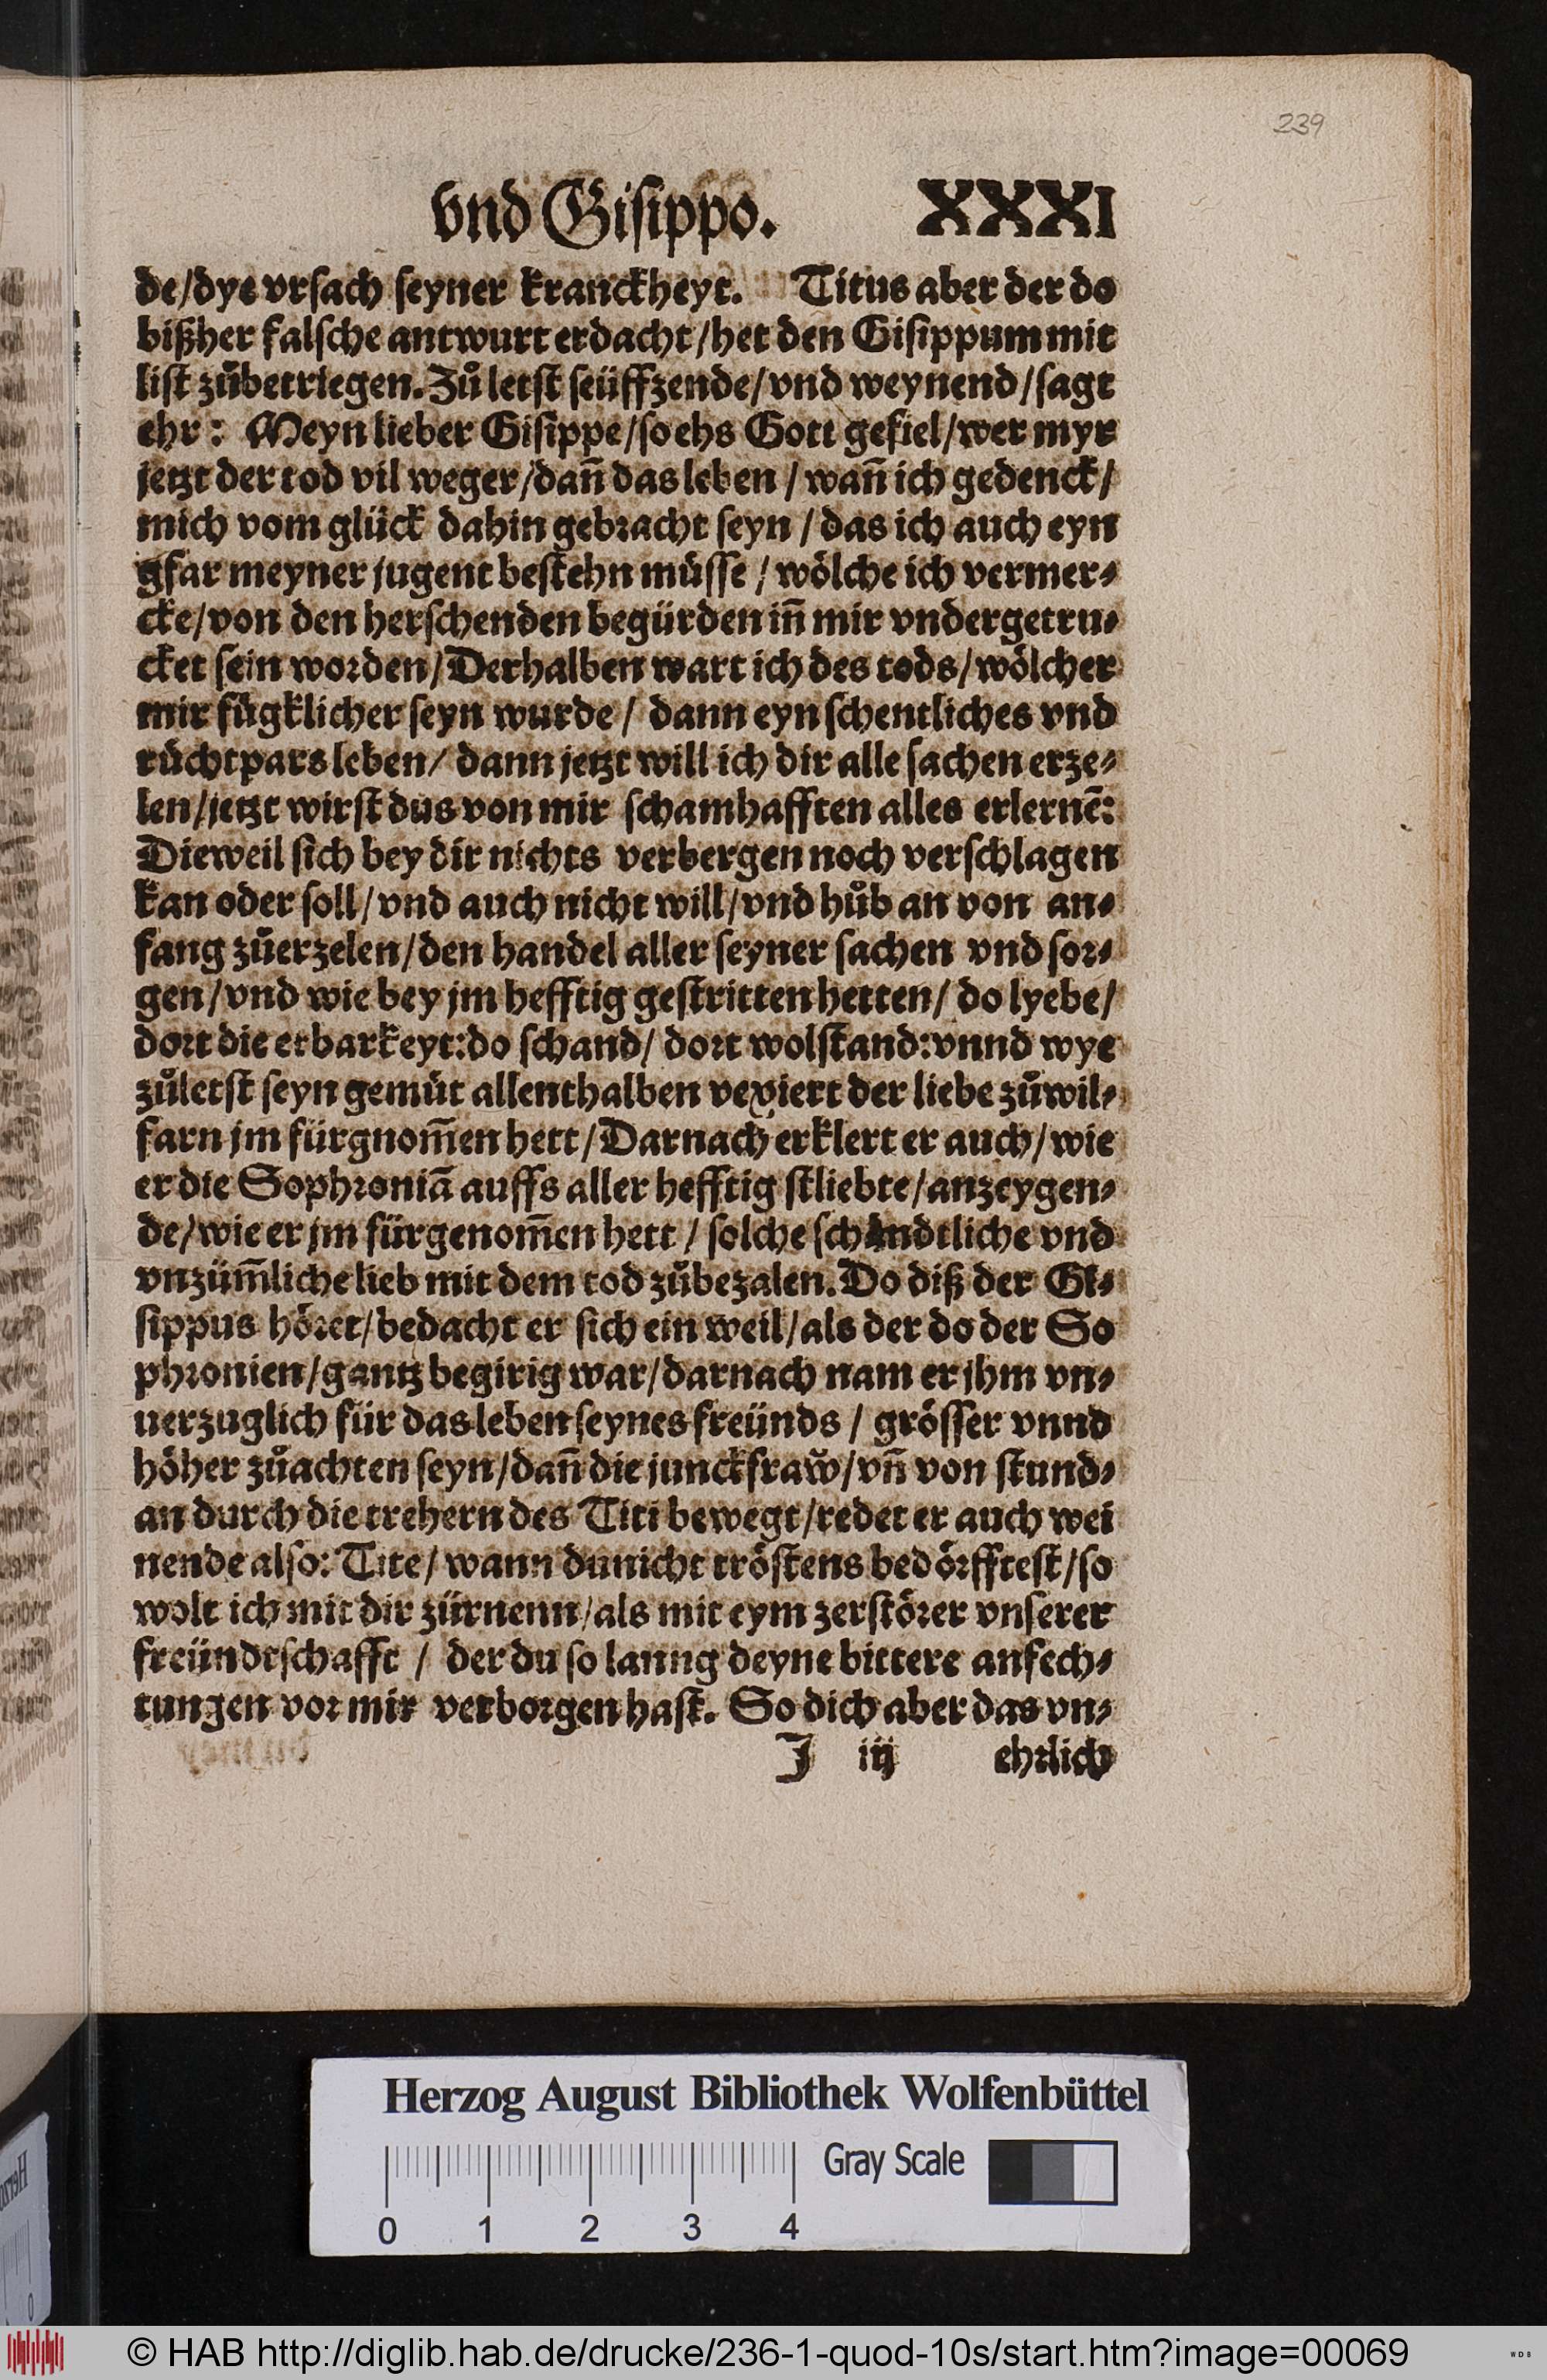 239
vnd Giſippo. XXXI
de/dye vrſach ſeyner kranckheyt. Titus aber der do
bißher falſche antwurt erdacht/het den Giſippum mit
liſt zůbetriegen. Zů letſt ſeüffzende/vnd weynend/ſagt
ehr: Meyn lieber Giſippe/ſo ehs Gott gefiel/wer myr
jetzt der tod vil weger/dañ das leben/wañ ich gedenck/
mich vom glück dahin gebracht ſeyn/das ich auch eyn
gfar meyner jugent beſtehn müſſe/wölche ich vermer⸗
cke/von den herſchenden begürden iñ mir vndergetru⸗
cket ſein worden/Derhalben wart ich des tods/wölcher
mir fügklicher ſeyn wurde/ dann eyn ſchentliches vnd
rüchtpars leben/ dann jetzt will ich dir alle ſachen erze⸗
len/jetzt wirſt dus von mir ſchamhafften alles erlernẽ:
Dieweil ſich bey dir nichts verbergen noch verſchlagen
kan oder ſoll/vnd auch nicht will/vnd hůb an von an⸗
fang zůerzelen/den handel aller ſeyner ſachen vnd ſor⸗
gen/vnd wie bey jm hefftig geſtritten hetten/ do lyebe/
dort die erbarkeyt:do ſchand/ dort wolſtand:vnnd wye
zůletſt ſeyn gemüt allenthalben vexiert der liebe zůwil⸗
farn jm fürgnom̃en hett/Darnach erklert er auch/wie
er die Sophroniã auffs aller hefftig ſtliebte/anzeygen⸗
de/wie er jm fürgenom̃en hett/ ſolche ſchändtliche vnd
vnzüm̃liche lieb mit dem tod zůbezalen. Do diß der Gi⸗
ſippus höret/bedacht er ſich ein weil/als der do der So
phronien/gantz begirig war/darnach nam er jhm vn⸗
uerzuglich für das leben ſeynes freünds/ gröſſer vnnd
höher zůachten ſeyn/dañ die junckfraw̃/vñ von ſtund⸗
an durch die trehern des Titi bewegt/redet er auch wei
nende alſo: Tite/ wann du nicht tröſtens bedörffteſt/ſo
wolt ich mit dir zürnenn/als mit eym zerſtörer vnſerer
freündtſchafft/ der du ſo lanng deyne bittere anfech⸗
tungen vor mir verborgen haſt. So dich aber das vn⸗
J iij ehrlich
Herzog August Bibliothek Wolfenbüttel
Gray Scale
0 1 2 3 4
© HAB http://diglib.hab.de/drucke/236-1-quod-10s/start.htm?image=00069